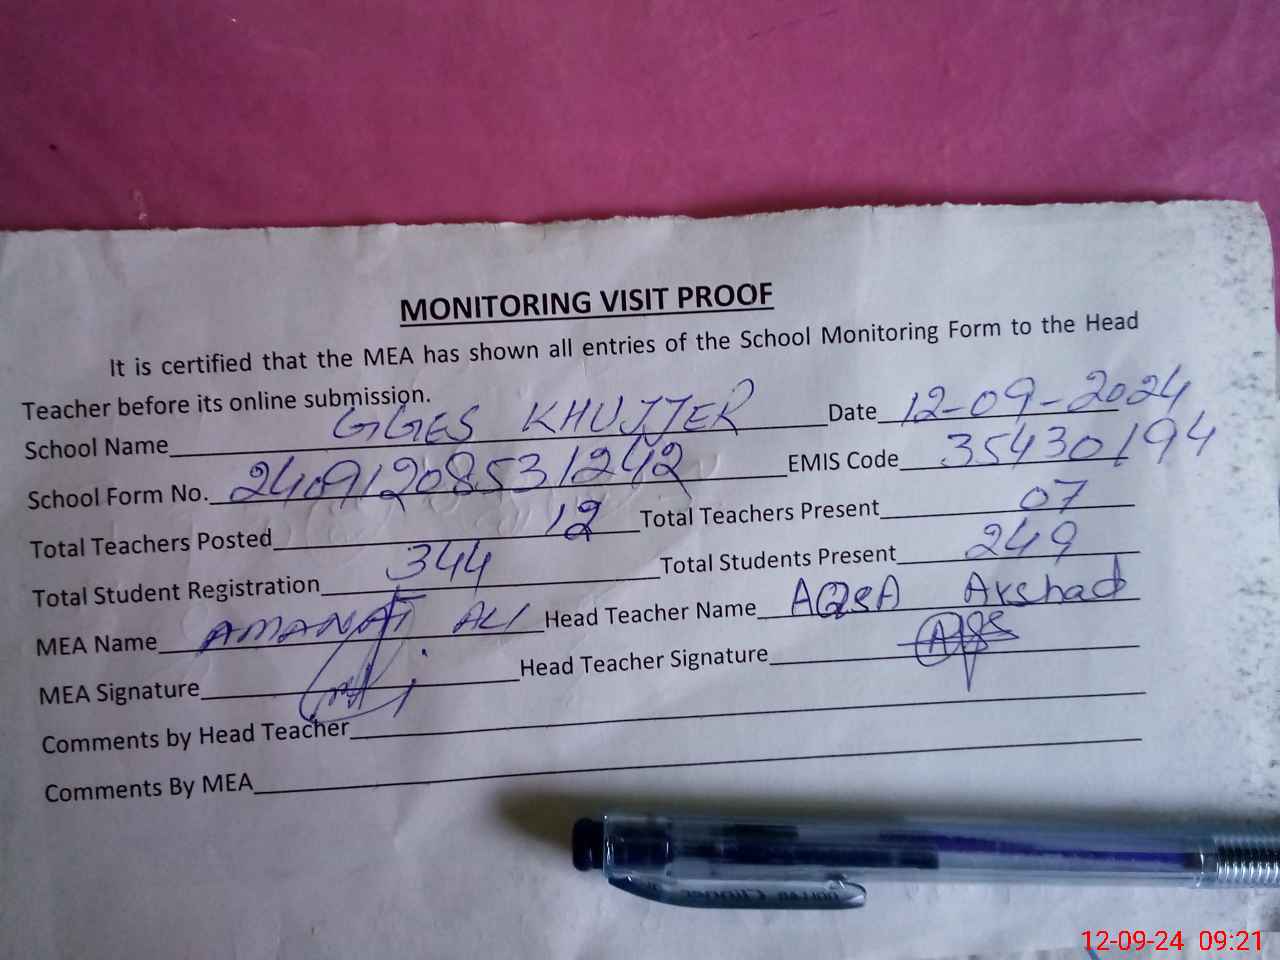 MONITORING VISIT PROOF
It is certified that the MEA has shown all entries of the School Monitoring Form to the Head
Teacher before its online submission.
School Name GGES KHUJJER Date 12-09-2024
School Form No. 24091208531242 EMIS Code 35430194
Total Teachers Posted 12 Total Teachers Present 07
Total Student Registration 344 Total Students Present 249
MEA Name AMANAT ALI Head Teacher Name AQSA Arshad
MEA Signature Head Teacher Signature
Comments by Head Teacher
Comments By MEA
12-09-24 09:21